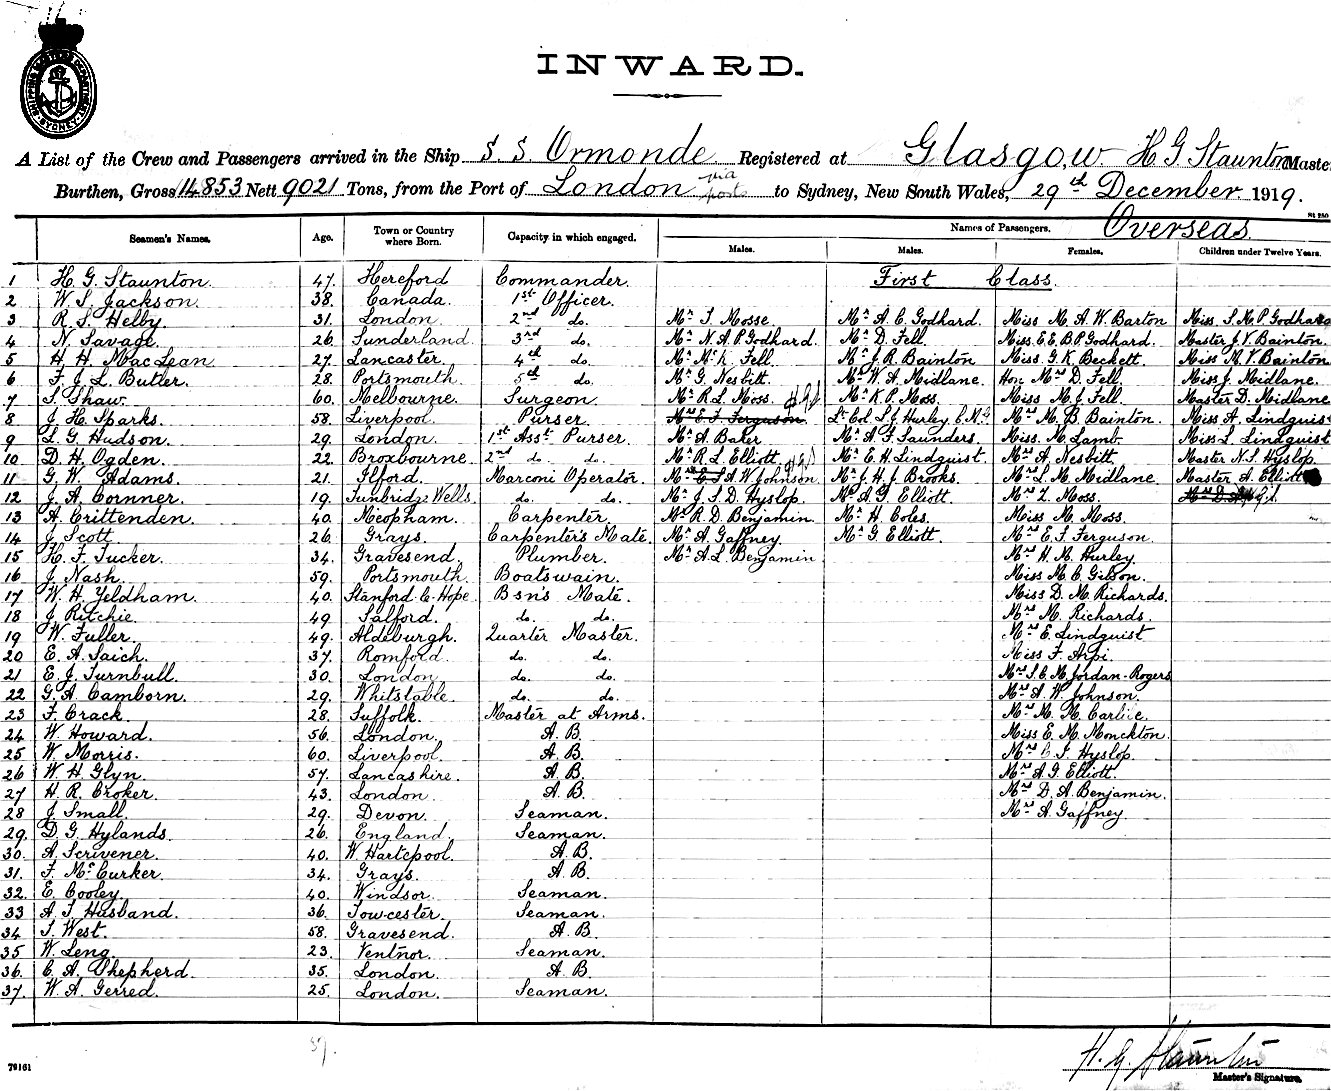 SHIPPING MASTER'S DEPARTMENT SYDNEY
INWARD.
A List of the Crew and Passengers arrived in the Ship S.S Ormonde Registered at Glasgow H G Staunton Master
Burthen, Gross 14853 Nett 9021 Tons, from the Port of London via ports to Sydney, New South Wales, 29th December 1919.
Seamen's Names. Age. Town or Country where Born. Capacity in which engaged. Names of Passengers. Overseas
Males. Males. Females. Children under Twelve Years.
1 H. G. Staunton. 47. Hereford Commander. First Class.
2 W. S. Jackson. 38. Canada. 1st Officer.
3 R. S. Helby. 31. London. 2nd do. Mr T. Mosse. Mr A E Godhard. Miss M. A. W. Barton Miss S. M. P. Godhard
4 N. Savage. 26. Sunderland. 3rd do. Mr N. A P. Godhard. Mr D. Fell. Miss. E E. B P. Godhard. Master J. V. Bainton.
5 H. H. MacLean 27. Lancaster. 4th do. Mr Mc K. Fell. Mr J. R. Bainton Miss. G. K. Beckett. Miss M. V. Bainton
6 F. J. L. Butler. 28. Portsmouth. 5th do. Mr G. Nesbitt. Mr W. A. Midlane. Hon. Mrs D. Fell. Miss J. Midlane.
7 T. Shaw. 60. Melbourne. Surgeon. Mr R. L. Moss. Mr K. P. Moss. Miss M. J. Fell. Master D. Midlane
8 J. H. Sparks. 58. Liverpool. Purser. Mrs E. F. Ferguson. Lt Col. L. J. Hurley C.M.G Mrs M. B. Bainton Miss A. Lindquist
9 L. G. Hudson. 29. London. 1st Asst Purser. Mr A. Baker Mr A. F. Saunders. Miss. N. Lamb. Miss L. Lindquist
10 D. H. Ogden. 22. Broxbourne. 2nd do. do. Mr R. L. Elliott. Mr E. H. Lindquist. Mrs A. Nesbitt. Master N. S. Hyslop.
11 G. W. Adams. 21. Ilford. Marconi Operator. A. W. Johnson. Mr J. H. J. Brooks. Mrs L. M. Midlane. Master A. Elliott
12 J. A. Cornner. 19. Tunbridge Wells. do. do. Mr J. S. D. Hyslop. Mr A. G. Elliott Mrs L. Moss.
13 A. Crittenden. 40. Meopham. Carpenter. Mr R. D. Benjamin. Mr H. Coles. Miss M. Moss.
14 J. Scott. 26. Grays. Carpenter's Mate. Mr A. Gaffney. Mr G. Elliott. Mrs E. F. Ferguson.
15 H. F. Tucker. 34. Gravesend. Plumber. Mr A. L. Benjamin Mrs H. M. Hurley.
16 J. Nash. 59. Portsmouth. Boatswain. Miss M. E. Gilson.
17 W. H. Yeldham. 40. Stanford-C-Hope. Bsn's Mate. Miss D. M. Richards.
18 J. Ritchie. 49. Salford. do. do. Mrs M. Richards.
19 W. Fuller. 49. Aldeburgh. Quarter Master. Mrs E. Lindquist
20 E. A. Saich. 37. Romford. do. do. Miss F. Arpi.
21 E. J. Turnbull. 30. London. do. do. Mrs S. E. M. Jordan-Rogers
22 G. A. Camborn. 29. Whitstable. do. do. Mrs A. W. Johnson.
23 F. Crack. 28. Suffolk. Master at Arms. Mrs M. M. Carlile.
24 W. Howard. 56. London. A. B. Miss E. M. Monckton.
25 W. Morris. 60. Liverpool. A. B. Mrs C. J. Hyslop.
26 W. H. Glyn. 57. Lancashire. A. B. Mrs A. G. Elliott.
27 H. R. Croker. 43. London. A. B. Mrs D. A. Benjamin.
28 J. Small. 29. Devon. Seaman. Mrs A. Gaffney
29. D. G. Hylands. 26. England. Seaman.
30. A. Scrivener. 40. W. Hartepool. A. B.
31. F. McCurker. 34. Grays. A. B.
32. E. Cooley. 40. Windsor. Seaman.
33 A. J. Husband. 36. Towcester. Seaman.
34 T. West. 58. Gravesend. A. B.
35 W. Leng. 23. Ventnor. Seaman.
36. C. A. Shepherd. 35. London. A. B.
37. W. A. Gerred. 25. London. Seaman.
H. G. Staunton
Master's Signature.
79161